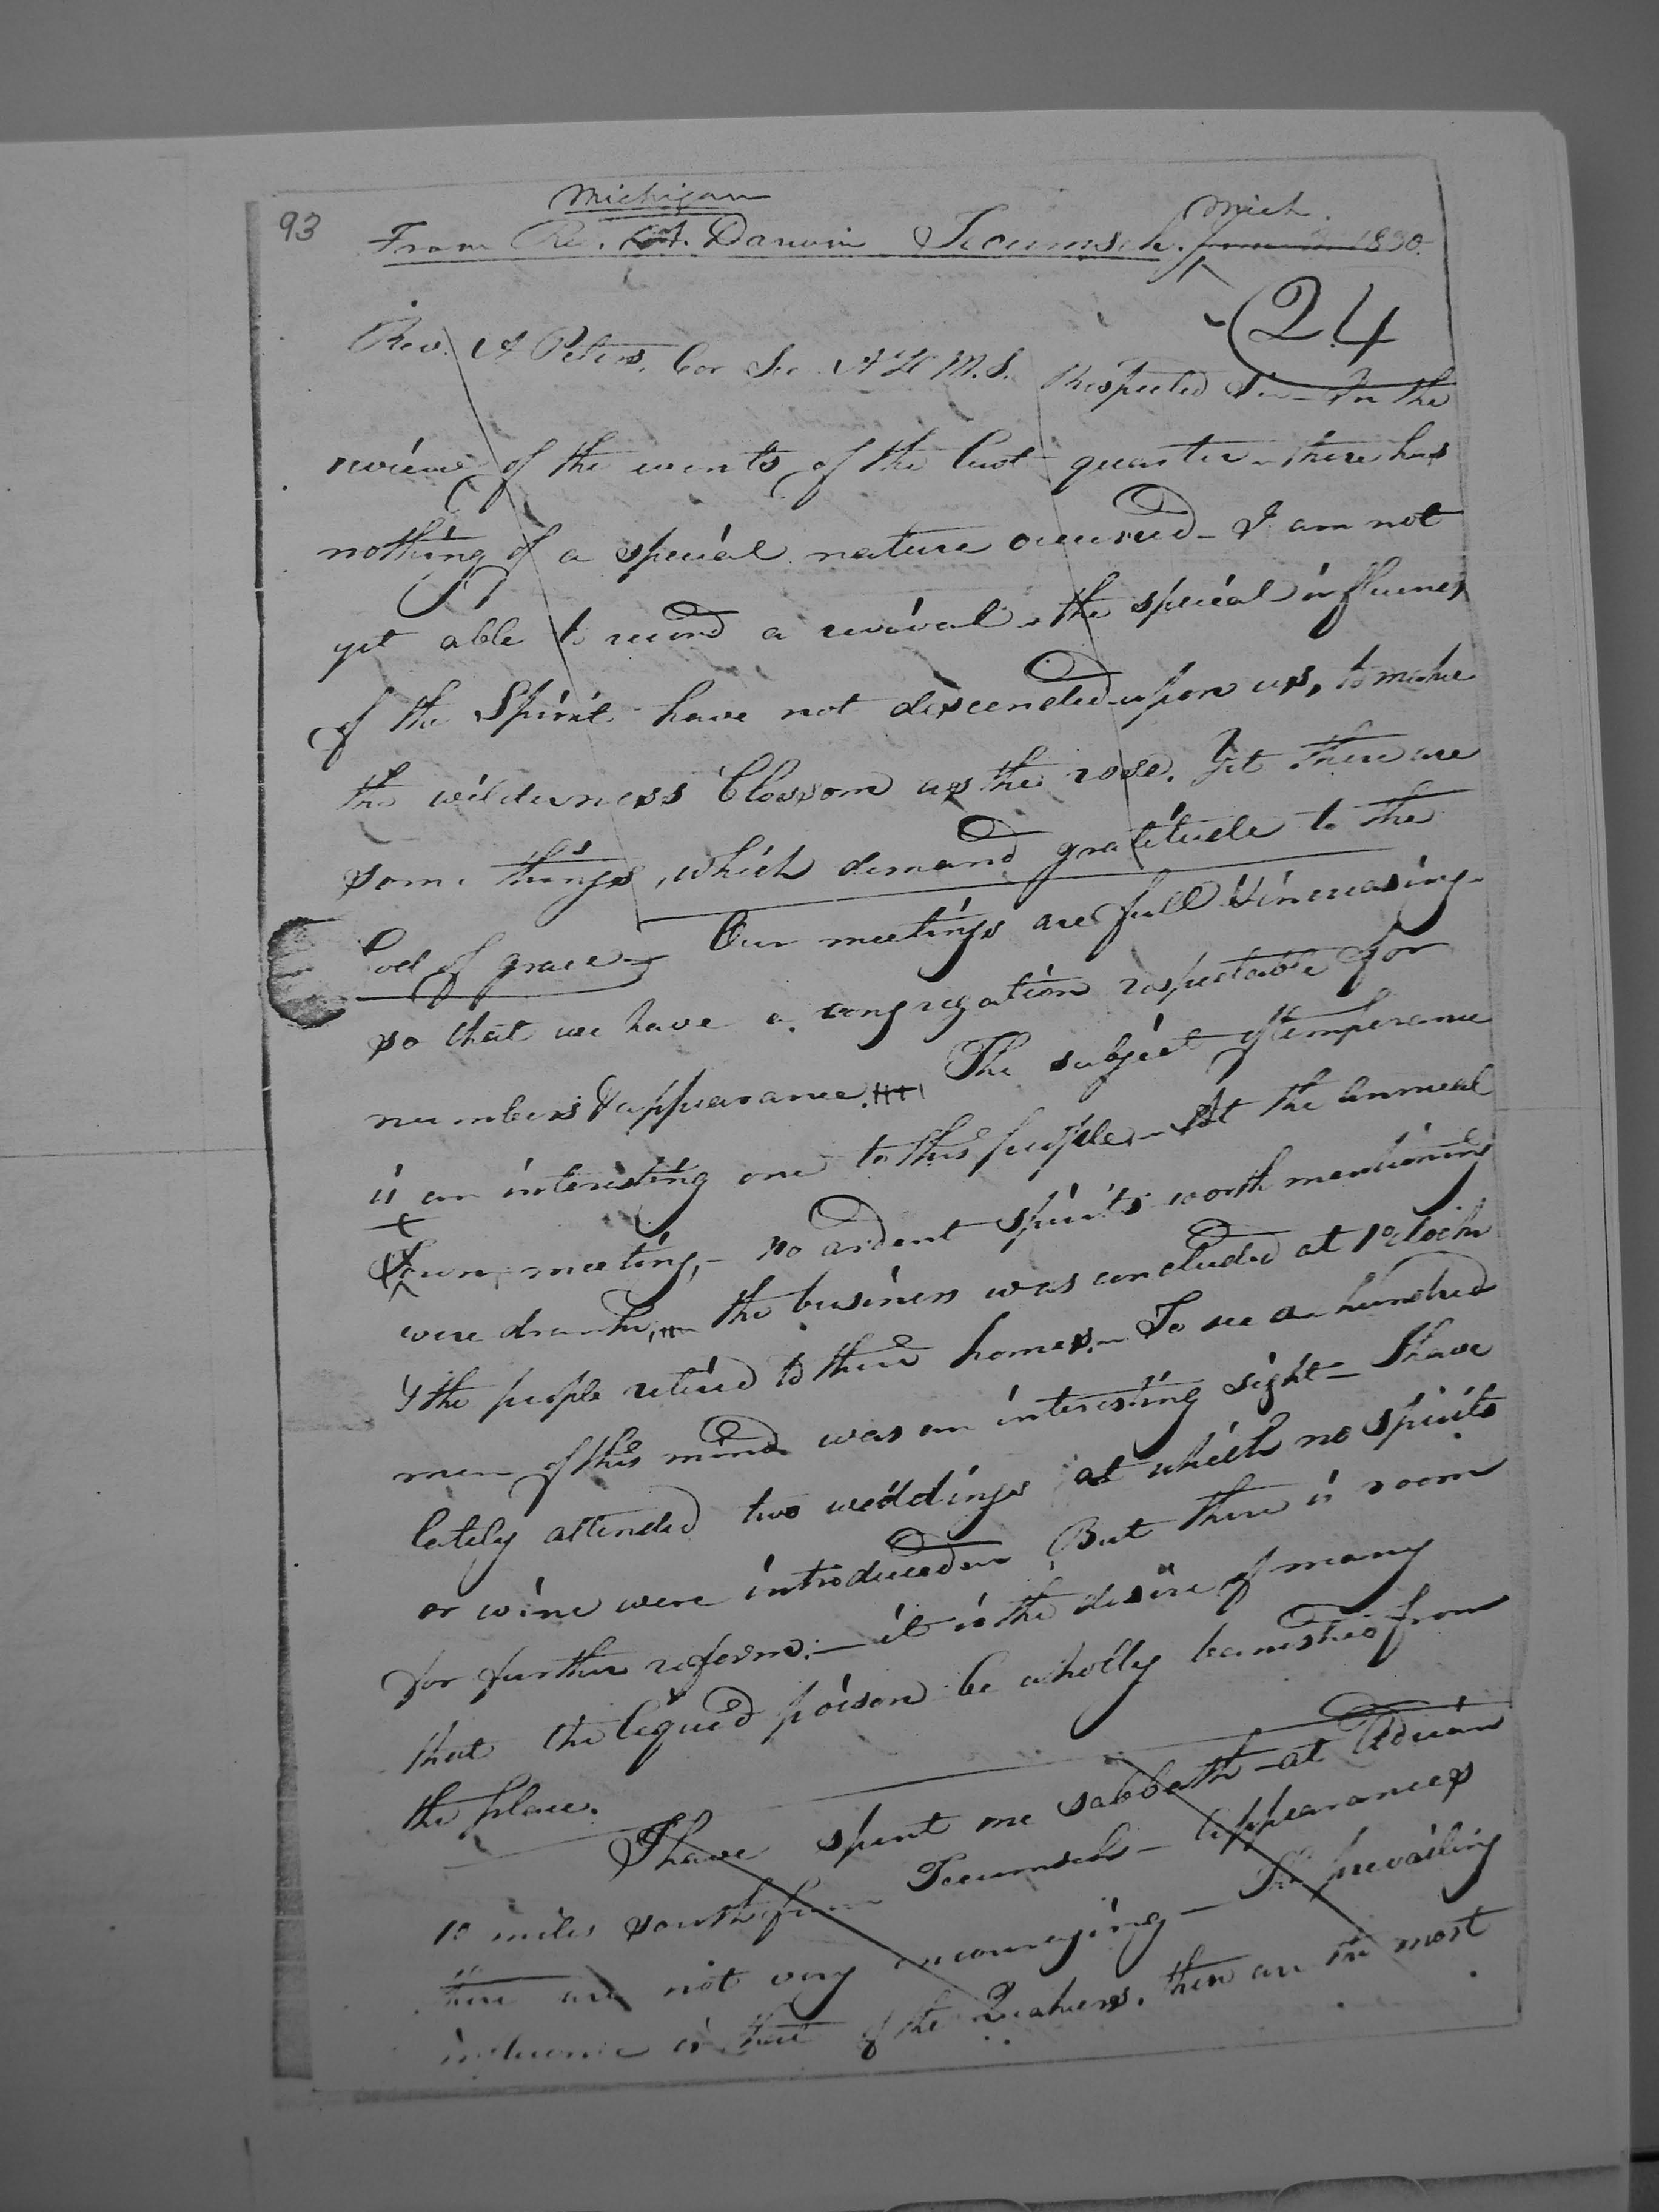 93
Michigan
Mich.
From Rev. A. Darwin Tecumseh. 1830.
24
Rev. A Peters, Cor Sec. A H M. S. Respected Sir - In the
review of the events of the last quarter - there has
nothing of a special nature occurred - I am not
yet able to record a revival - the special influences
of the Spirit have not descended upon us, to make
the wilderness blossom as the rose. Yet there are
some things, which demand gratitude to the
God of grace - Our meetings are full & increasing -
so that we have a congregation respectable for
numbers & appearance. The subject of temperance
is an interesting one to this people. - At the annual
Town meeting, - no ardent spirits worth mentioning
were drank, - the business was concluded at 1 o'clock
& the people retired to their homes. - To see a hundred
men of this mind was an interesting sight - I have
lately attended two weddings at which no spirits
or wine were introduced - But there is room
for further reform: - it is the desire of many
that the liquid poison be wholly banished from
the place.
I have spent one sabbath at Adrian
10 miles south from Tecumseh - Appearances
there are not very encouraging - The prevailing
influence is that of the Quakers. there are the most